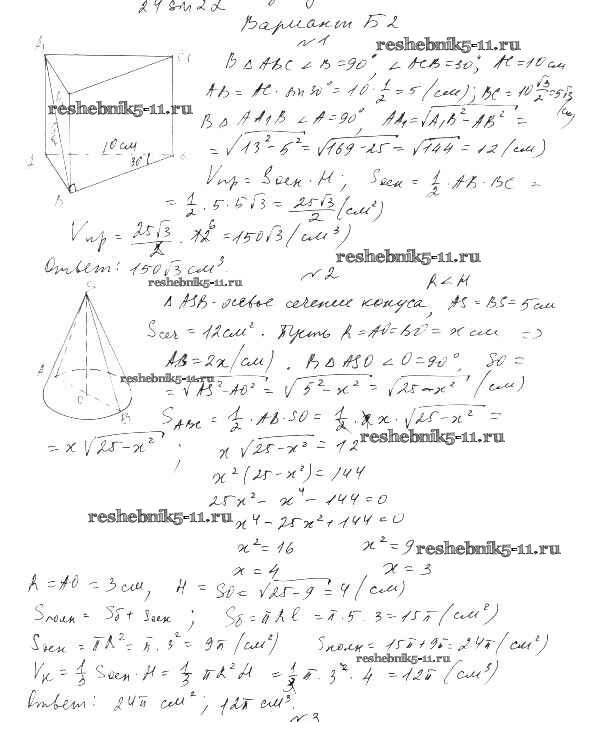 Вариант Б2
№1
reshebnik5-11.ru
В △ABC ∠B=90°, ∠ACB=30°, AC=10 см
AB = AC · sin 30° = 10 · 1/2 = 5 (см); BC = 10 √3/2 = 5√3 (см)
reshebnik5-11.ru
В △ AA₁B ∠A=90°, AA₁=√(A₁B² - AB²) =
= √(13²-5²) = √(169-25) = √144 = 12 (см)
A₁
B
10 см
30°
Vпр = Sосн · H; Sосн = 1/2 · AB · BC =
= 1/2 · 5 · 5√3 = 25√3/2 (см²)
Vпр = 25√3/2 · 12 6 = 150√3 (см³)
Ответ: 150√3 см³.
reshebnik5-11.ru
reshebnik5-11.ru
№2
R<H
△ ASB - осевое сечение конуса, AS = BS = 5 см
Sсеч = 12 см². Пусть R=AO=BO = x см =>
AB = 2x (см). В △ ASO ∠O=90°, SO =
reshebnik5-11.ru
= √(AS²-AO²) = √(5²-x²) = √(25-x²) (см)
S
A
O
B
SABC = 1/2 · AB · SO = 1/2 · 2x · √(25-x²) =
= x√(25-x²); x√(25-x²) = 12
reshebnik5-11.ru
x²(25-x²) = 144
25x² - x⁴ - 144 = 0
reshebnik5-11.ru
x⁴ - 25x² + 144 = 0
x² = 16 x² = 9
reshebnik5-11.ru
x = 4 x = 3
R = AO = 3 см, H = SO = √(25-9) = 4 (см)
Sполн = Sб + Sосн; Sб = πRl = π · 5 · 3 = 15π (см²)
Sосн = πR² = π · 3² = 9π (см²) Sполн = 15π + 9π = 24π (см²)
reshebnik5-11.ru
Vк = 1/3 Sосн · H = 1/3 πR²H = 1/3 π · 3² · 4 = 12π (см³)
Ответ: 24π см²; 12π см³.
№3